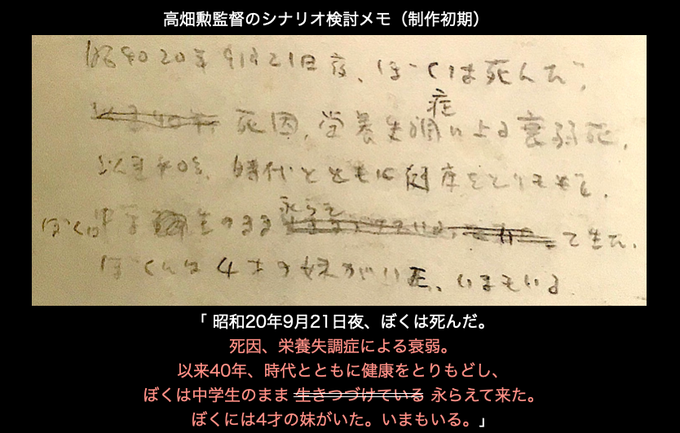 高畑勲監督のシナリオ検討メモ（制作初期）
昭和20年9月21日夜、ぼくは死んだ。
症
死因、栄養失調による衰弱死。
以来40年、時代とともに健康をとりもどし、
永らえ
ぼくは中学生のまま て生た。
ぼくには4才の妹がいた、いまもいる
「 昭和20年9月21日夜、ぼくは死んだ。
死因、栄養失調症による衰弱。
以来40年、時代とともに健康をとりもどし、
ぼくは中学生のまま 生きつづけている 永らえて来た。
ぼくには4才の妹がいた。いまもいる。」